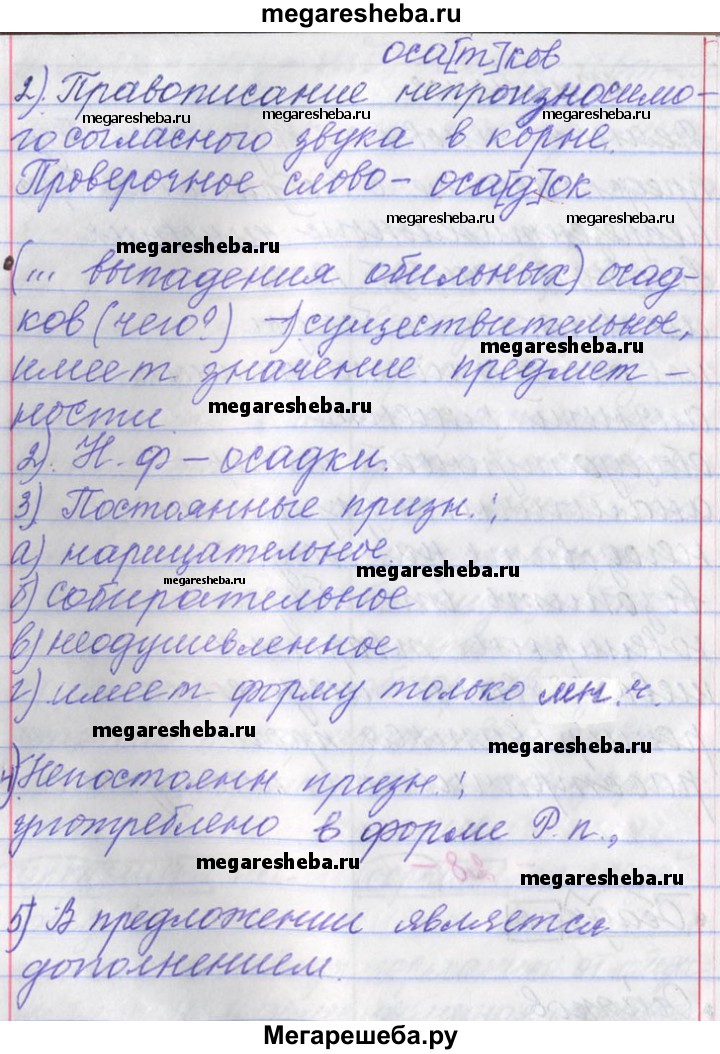 megaresheba.ru
оса[т]ков
2). Правописание непроизносимо-
megaresheba.ru megaresheba.ru
го согласного звука в корне.
Проверочное слово - оса[д]ок
megaresheba.ru megaresheba.ru
megaresheba.ru
(... выпадения обильных) осад-
ков (чего?) - 1) существительное,
megaresheba.ru
имеет значение предмет -
megaresheba.ru
ности.
2). Н. ф - осадки.
3) Постоянные призн.:
а) нарицательное.
megaresheba.ru
megaresheba.ru
б) собирательное
в) неодушевленное
г) имеет форму только мн. ч.
megaresheba.ru
megaresheba.ru
4) Непостоянн. призн.:
употреблено в форме Р. п.,
megaresheba.ru
- 28 -
megaresheba.ru
5) В предложении является
дополнением.
Мегарешеба.ру